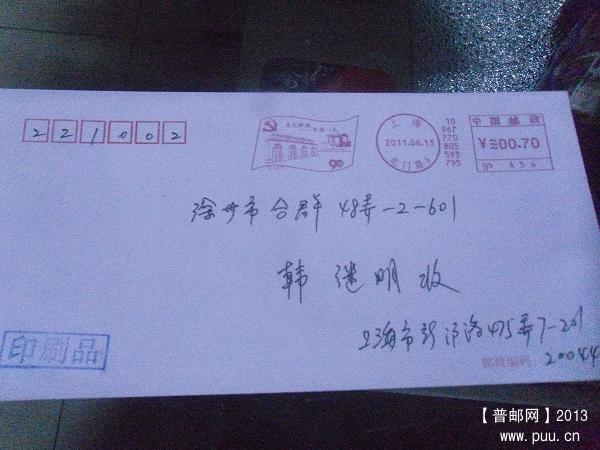 221002
上海
2011.06.13
10
967
770
805
593
795
中国邮政
¥≡00.70
沪 A
90
徐州市 合群 48弄-2-601
韩 继明 收
上海市新沪路475弄7-201
邮政编码: 200444
印刷品
【普邮网】2013
www.puu.cn